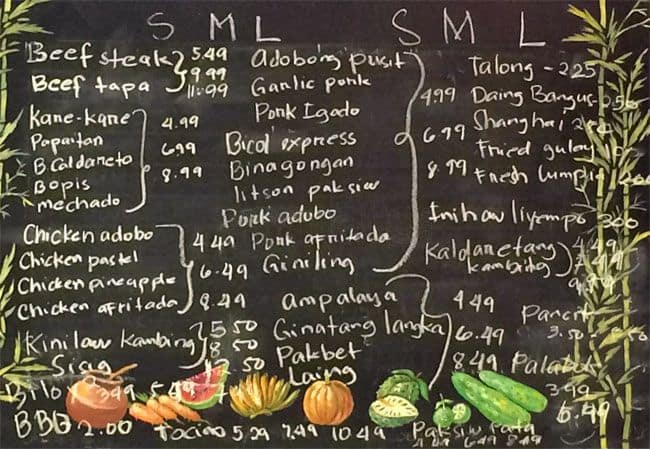 S M L S M L
Beef steak 5.49
Beef tapa 9.99
11.99
Kare-kare
Papaitan 4.99
B Caldareto 6.99
Bopis 8.99
mechado
Chicken adobo 4.49
Chicken pastel
Chicken pineapple 6.49
Chicken afritada 8.49
Kinilaw kambing 5.50
Sisig 8.50
.50
Bilo 3.49 5.49
BBQ 2.00
Adobong pusit
Garlic pork
Pork Igado
Bicol express
Binagongan
litson paksiw
Pork adobo
Pork afritada
Giniling
4.99
6.99
8.99
ampalaya
Ginatang langka
Pakbet
Laing
4.49
6.49
8.49
Tocino 5.29 7.49 10.49
Talong - 2.25
Daing Bangus
Shanghai
Fried
Fresh lumpia
Inihaw liyempo
Kaldaretang
kambing
Pancit
3.50
Palabok
3.99
6.49
Paksiw Pata
6.49 8.49